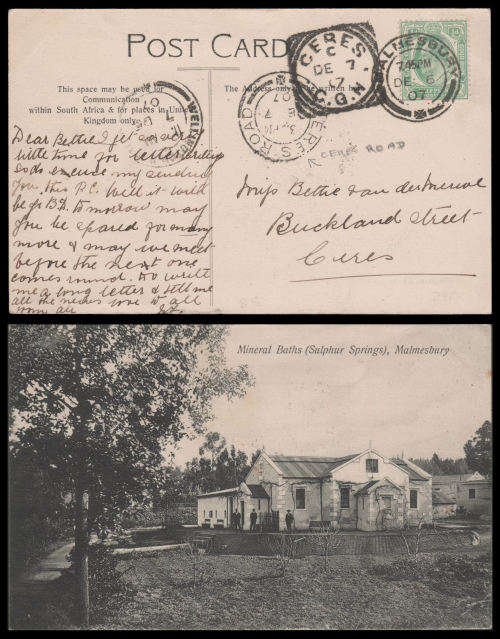 POST CARD
This space may be used for
Communication
within South Africa & for places in United
Kingdom only.
The Address only to be written here
CERES
C
DE 7
07
C.G.H
MALMESBURY
7.45PM
DE 6
07
CERES ROAD
DE 7
07
CERES ROAD
WELLIN
DE 7
07
Dear Bettie I get so very
little time for letterwriting
so do excuse my sending
you this P.C. Well it will
be yr B.D. tomorrow may
you be spared for many
more & may we meet
before the next one
comes round. Do write
me a long letter & tell me
all the news love to all
from all
Miss Bettie van der Merwe
Buckland Street
Ceres
Mineral Baths (Sulphur Springs), Malmesbury